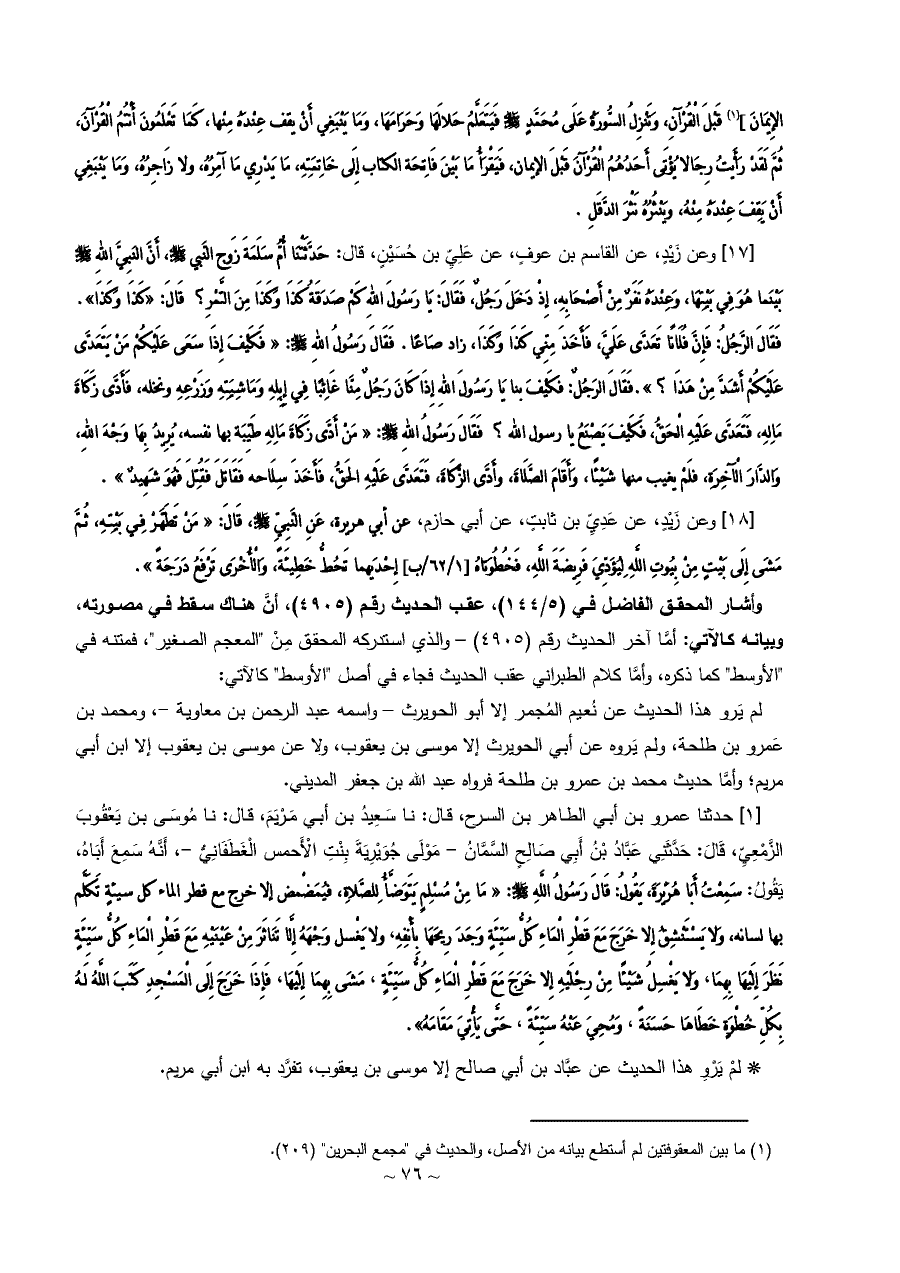 الإِيمَانَ ](١) قَبْلَ الْقُرْآنِ، وَتَنْزِلُ السُّورَةُ عَلَى مُحَمَّدٍ ﷺ فَيَتَعَلَّمُ حَلالَهَا وَحَرَامَهَا، وَمَا يَنْبَغِي أَنْ يقف عِنْدَهُ مِنْها، كَمَا تَعْلَمُونَ أَنْتُمُ الْقُرْآنَ،
ثُمَّ لَقَدْ رَأَيتُ رِجَالا يُؤْتَى أَحَدُهُمُ الْقُرْآنَ قَبْلَ الإيمان، فَيَقْرَأُ مَا بَيْنَ فَاتِحَة الكتاب إِلَى خَاتِمَتِهِ، مَا يَدْرِي مَا آمِرُهُ، ولا زَاجِرُهُ، وَمَا يَنْبَغِي
أَنْ يَقِفَ عِنْدَهُ مِنْهُ، وَيَنْثُرُهُ نَثْرَ الدَّقَلِ .
[١٧] وعن زَيْدٍ، عن القاسم بن عوفٍ، عن عَلِيِّ بن حُسَيْنٍ، قال: حَدَّثَتْنَا أُمُّ سَلَمَةَ زَوج النَّبي ﷺ، أَنَّ النَّبِيَّ الله ﷺ
بَيْنَما هُوَ فِي بَيْتِهَا، وَعِنْدَهُ نَفَرٌ مِنْ أَصْحَابِهِ، إِذْ دَخَلَ رَجُلٌ، فَقَالَ: يَا رَسُولَ اللهِ كَمْ صَدَقَةُ كَذَا وَكَذَا مِنَ التَّمْرِ ؟ قَالَ: «كَذَا وَكَذَا».
فَقَالَ الرَّجُلُ: فَإِنَّ فُلَانًا تَعَدَّى عَلَيَّ، فَأَخَذَ مِنِّي كَذَا وَكَذَا، زاد صَاعًا . فَقَالَ رَسُولُ اللهِ ﷺ: « فَكَيفَ إِذا سَعَى عَلَيكُمْ مَنْ يَتَعَدَّى
عَلَيكُمْ أَشَدَّ مِنْ هَذَا ؟ » .فَقَالَ الرَجُلُ: فَكَيْفَ بنا يَا رَسُولَ اللهِ إِذَا كَانَ رَجُلٌ مِنَّا غَائِبًا فِي إِبِلِهِ وَمَاشِيَتِهِ وَزَرْعِهِ ونخله، فَأَدَّى زَكَاةَ
مَالِهِ، فَتَعَدَّى عَلَيهِ الْحَقُّ، فَكَيفَ يَصْنَعُ يا رسول الله ؟ فَقَالَ رَسُولُ اللهِ ﷺ: « مَنْ أَدَّى زَكَاةَ مَالِهِ طَيِّبَة بها نفسه، يُرِيدُ بِهَا وَجْهَ اللهِ،
وَالدَّارَ الْآخِرَةِ، فَلَمْ يغيب منها شَيْئًا، وَأَقَامَ الصَّلَاةَ، وأَدَّى الزَّكَاةَ، فَتَعَدَّى عَلَيهِ الْحَقُّ، فَأَخَذَ سِلَاحه فَقَاتَلَ فَقُتِلَ فَهُوَ شَهِيدٌ » .
[١٨] وعن زَيْدٍ، عن عَدِيِّ بن ثابتٍ، عن أبي حازم، عن أبي هريرة، عَنِ النَّبِيِّ ﷺ، قَالَ: « مَنْ تَطَهَّرَ فِي بَيْتِهِ، ثُمَّ
مَشَى إِلَى بَيْتٍ مِنْ بِيُوتِ اللَّهِ لِيُؤَدِّيَ فَرِيضَةَ اللَّهِ، فَخُطُوَتَاهُ [١/٦٢/ب] إِحْدَيهما تَحُطُّ خَطِيئَةً، وَالْأُخْرَى تَرْفَعُ دَرَجَةً » .
وأشار المحقق الفاضل في (٥/١٤٤)، عقب الحديث رقم (٤٩٠٥)، أنَّ هناك سقط في مصورته،
وبيانه كالآتي: أمَّا آخر الحديث رقم (٤٩٠٥) – والذي استدركه المحقق مِنْ "المعجم الصغير"، فمتنه في
"الأوسط" كما ذكره، وأمَّا كلام الطبراني عقب الحديث فجاء في أصل "الأوسط" كالآتي:
لم يَرو هذا الحديث عن نُعيم المُجمر إلا أبو الحويرث – واسمه عبد الرحمن بن معاوية –، ومحمد بن
عَمرو بن طلحة، ولم يَروه عن أبي الحويرث إلا موسى بن يعقوب، ولا عن موسى بن يعقوب إلا ابن أبي
مريم؛ وأمَّا حديث محمد بن عمرو بن طلحة فرواه عبد الله بن جعفر المديني.
[١] حدثنا عمرو بن أبي الطاهر بن السرح، قال: نا سَعِيدُ بن أبي مَرْيَمَ، قال: نا مُوسَى بن يَعْقُوبَ
الزَّمْعِيِّ، قَالَ: حَدَّثَنِي عَبَّادُ بْنُ أَبِي صَالِحٍ السَّمَّانُ – مَوْلَى جُوَيْرِيَةَ بِنْتِ الْأَحمس الْغَطَفَانِيُّ –، أَنَّهُ سَمِعَ أَبَاهُ،
يَقُولُ: سَمِعْتُ أَبَا هُرَيْرَةَ، يَقُولُ: قَالَ رَسُولُ اللَّهِ ﷺ: « مَا مِنْ مُسْلِمٍ يَتَوَضَّأُ لِلصَّلاةِ، فَيُمَضْمض إلا خرج مع قطر الماء كل سيئةٍ تَكَلَّم
بها لسانه، وَلا يَسْتَنْشِقُ إِلا خَرَجَ مَعَ قَطْرِ الْمَاءِ كُلُّ سَيِّئَةٍ وَجَدَ رِيحَهَا بِأَنْفِهِ، ولا يَغْسل وَجْهَهُ إِلَّا تَنَاثَرَ مِنْ عَيْنَيْهِ مَعَ قَطْرِ الْمَاءِ كُلُّ سَيِّئَةٍ
نَظَرَ إِلَيْهَا بِهِمَا، وَلا يَغْسِلُ شَيْئًا مِنْ رِجْلَيْهِ إِلا خَرَجَ مَعَ قَطْرِ الْمَاءِ كُلُّ سَيِّئَةٍ ، مَشَى بِهِمَا إِلَيْهَا، فَإِذَا خَرَجَ إِلَى الْمَسْجِدِ كَتَبَ اللَّهُ لَهُ
بِكُلِّ خُطْوَةٍ خَطَاهَا حَسَنَةً ، وَمُحِيَ عَنْهُ سَيِّئَةً ، حَتَّى يَأْتِيَ مَقَامَهُ».
* لمْ يَرْوِ هذا الحديث عن عبَّاد بن أبي صالح إلا موسى بن يعقوب، تفرَّد به ابن أبي مريم.
(١) ما بين المعقوفتين لم أستطع بيانه من الأصل، والحديث في "مجمع البحرين" (٢٠٩).
~ ٧٦ ~